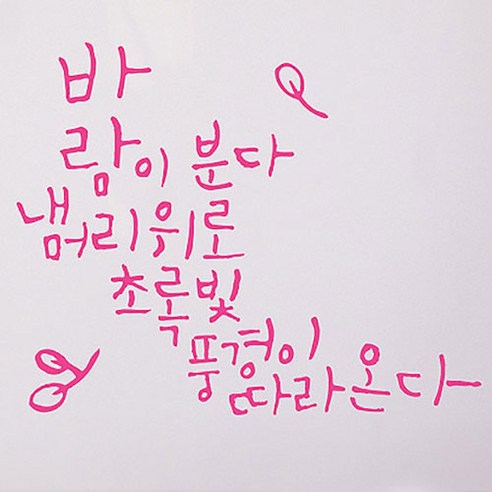 바
람이 분다
내머리위로
초록빛
풍경이
따라온다